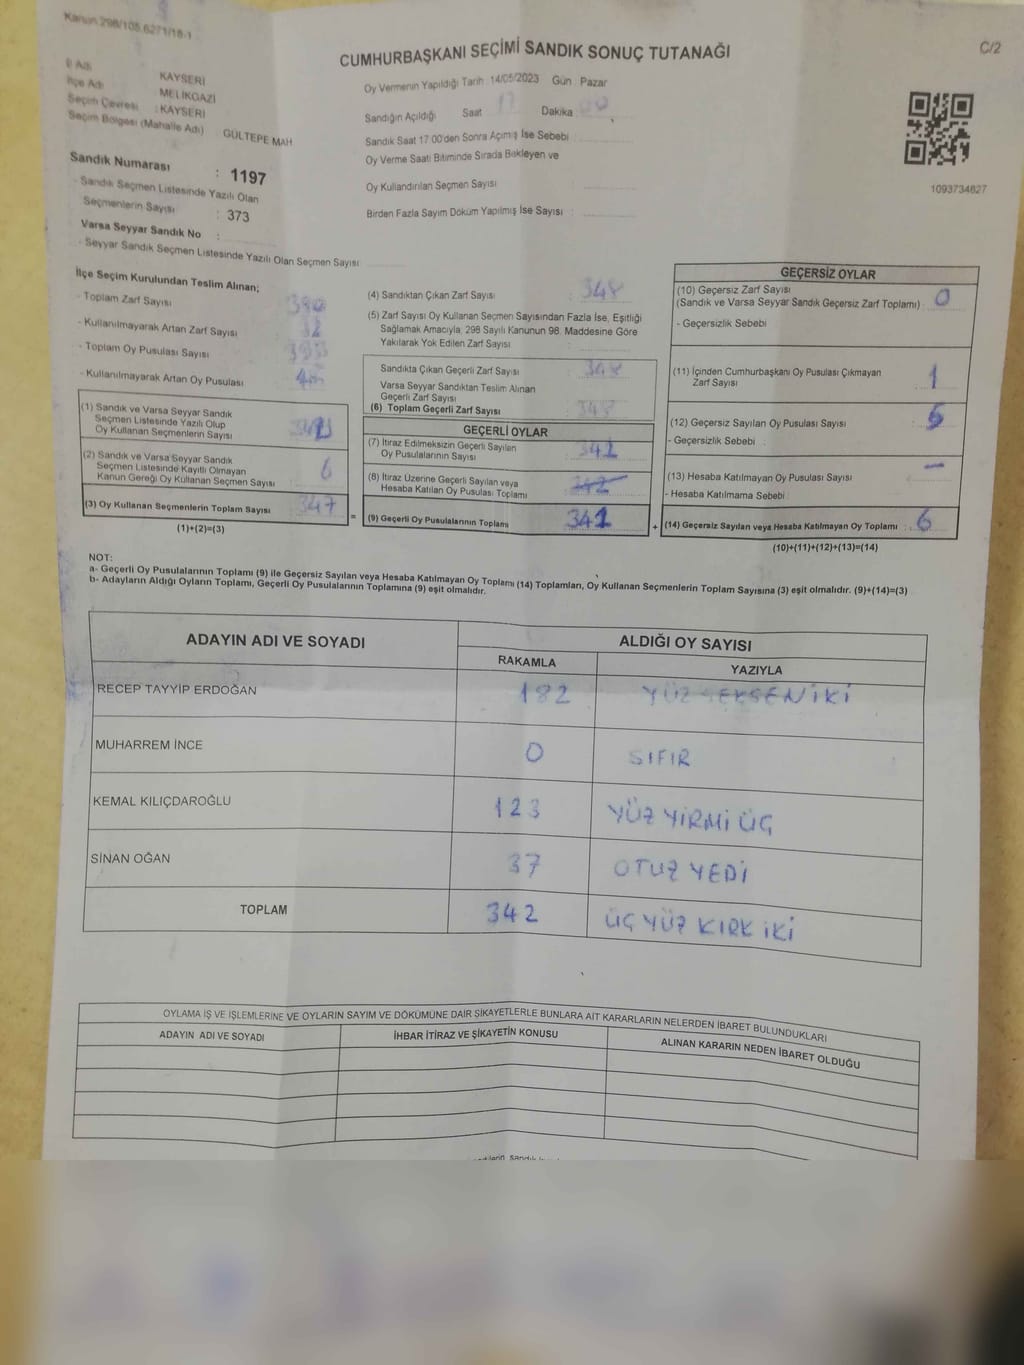 Kanun 298/105,6271/18-1
C/2
CUMHURBAŞKANI SEÇİMİ SANDIK SONUÇ TUTANAĞI
İl Adı
KAYSERİ
İlçe Adı
MELİKGAZİ
Seçim Çevresi : KAYSERİ
Seçim Bölgesi (Mahalle Adı) GÜLTEPE MAH
Sandık Numarası : 1197
- Sandık Seçmen Listesinde Yazılı Olan
Seçmenlerin Sayısı : 373
Varsa Seyyar Sandık No :
- Seyyar Sandık Seçmen Listesinde Yazılı Olan Seçmen Sayısı
Oy Vermenin Yapıldığı Tarih 14/05/2023 Gün : Pazar
Sandığın Açıldığı Saat 17 Dakika 00
Sandık Saat 17:00'den Sonra Açılmış İse Sebebi
Oy Verme Saati Bitiminde Sırada Bekleyen ve
Oy Kullandırılan Seçmen Sayısı
Birden Fazla Sayım Döküm Yapılmış İse Sayısı :
1093734627
İlçe Seçim Kurulundan Teslim Alınan;
- Toplam Zarf Sayısı 380
- Kullanılmayarak Artan Zarf Sayısı 32
- Toplam Oy Pusulası Sayısı
- Kullanılmayarak Artan Oy Pusulası
(1) Sandık ve Varsa Seyyar Sandık
Seçmen Listesinde Yazılı Olup
Oy Kullanan Seçmenlerin Sayısı
(2) Sandık ve Varsa Seyyar Sandık
Seçmen Listesinde Kayıtlı Olmayan
Kanun Gereği Oy Kullanan Seçmen Sayısı : 6
(3) Oy Kullanan Seçmenlerin Toplam Sayısı 347
(1)+(2)=(3)
(4) Sandıktan Çıkan Zarf Sayısı : 348
(5) Zarf Sayısı Oy Kullanan Seçmen Sayısından Fazla İse, Eşitliği
Sağlamak Amacıyla, 298 Sayılı Kanunun 98. Maddesine Göre
Yakılarak Yok Edilen Zarf Sayısı
Sandıkta Çıkan Geçerli Zarf Sayısı : 348
Varsa Seyyar Sandıktan Teslim Alınan
Geçerli Zarf Sayısı
(6) Toplam Geçerli Zarf Sayısı : 348
GEÇERLİ OYLAR
(7) İtiraz Edilmeksizin Geçerli Sayılan
Oy Pusulalarının Sayısı
(8) İtiraz Üzerine Geçerli Sayılan veya
Hesaba Katılan Oy Pusulası Toplamı 342
= (9) Geçerli Oy Pusulalarının Toplamı 341 +
GEÇERSİZ OYLAR
(10) Geçersiz Zarf Sayısı
(Sandık ve Varsa Seyyar Sandık Geçersiz Zarf Toplamı) : 0
- Geçersizlik Sebebi
(11) İçinden Cumhurbaşkanı Oy Pusulası Çıkmayan
Zarf Sayısı 1
(12) Geçersiz Sayılan Oy Pusulası Sayısı : 5
- Geçersizlik Sebebi :
(13) Hesaba Katılmayan Oy Pusulası Sayısı : -
- Hesaba Katılmama Sebebi
(14) Geçersiz Sayılan veya Hesaba Katılmayan Oy Toplamı : 6
(10)+(11)+(12)+(13)=(14)
NOT:
a- Geçerli Oy Pusulalarının Toplamı (9) ile Geçersiz Sayılan veya Hesaba Katılmayan Oy Toplamı (14) Toplamları, Oy Kullanan Seçmenlerin Toplam Sayısına (3) eşit olmalıdır. (9)+(14)=(3)
b- Adayların Aldığı Oyların Toplamı, Geçerli Oy Pusulalarının Toplamına (9) eşit olmalıdır.
ADAYIN ADI VE SOYADI ALDIĞI OY SAYISI
RAKAMLA YAZIYLA
RECEP TAYYİP ERDOĞAN 182 YÜZ SEKSEN İKİ
MUHARREM İNCE 0 SIFIR
KEMAL KILIÇDAROĞLU 123 YÜZ YİRMİ ÜÇ
SİNAN OĞAN 37 OTUZ YEDİ
TOPLAM 342 ÜÇ YÜZ KIRK İKİ
OYLAMA İŞ VE İŞLEMLERİNE VE OYLARIN SAYIM VE DÖKÜMÜNE DAİR ŞİKAYETLERLE BUNLARA AİT KARARLARIN NELERDEN İBARET BULUNDUKLARI
ADAYIN ADI VE SOYADI İHBAR İTİRAZ VE ŞİKAYETİN KONUSU ALINAN KARARIN NEDEN İBARET OLDUĞU